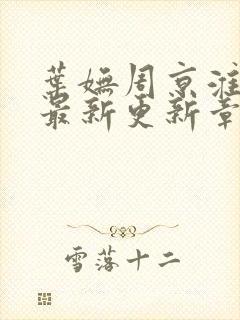 葉嫵周京淮
最新更新章
雪落十二